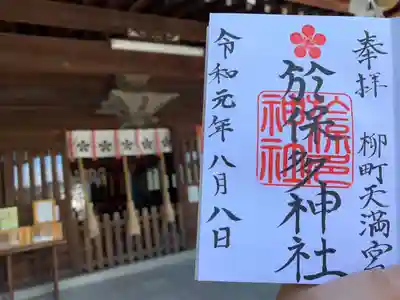 奉拝 柳町天満宮
於保多神社
令和元年八月八日